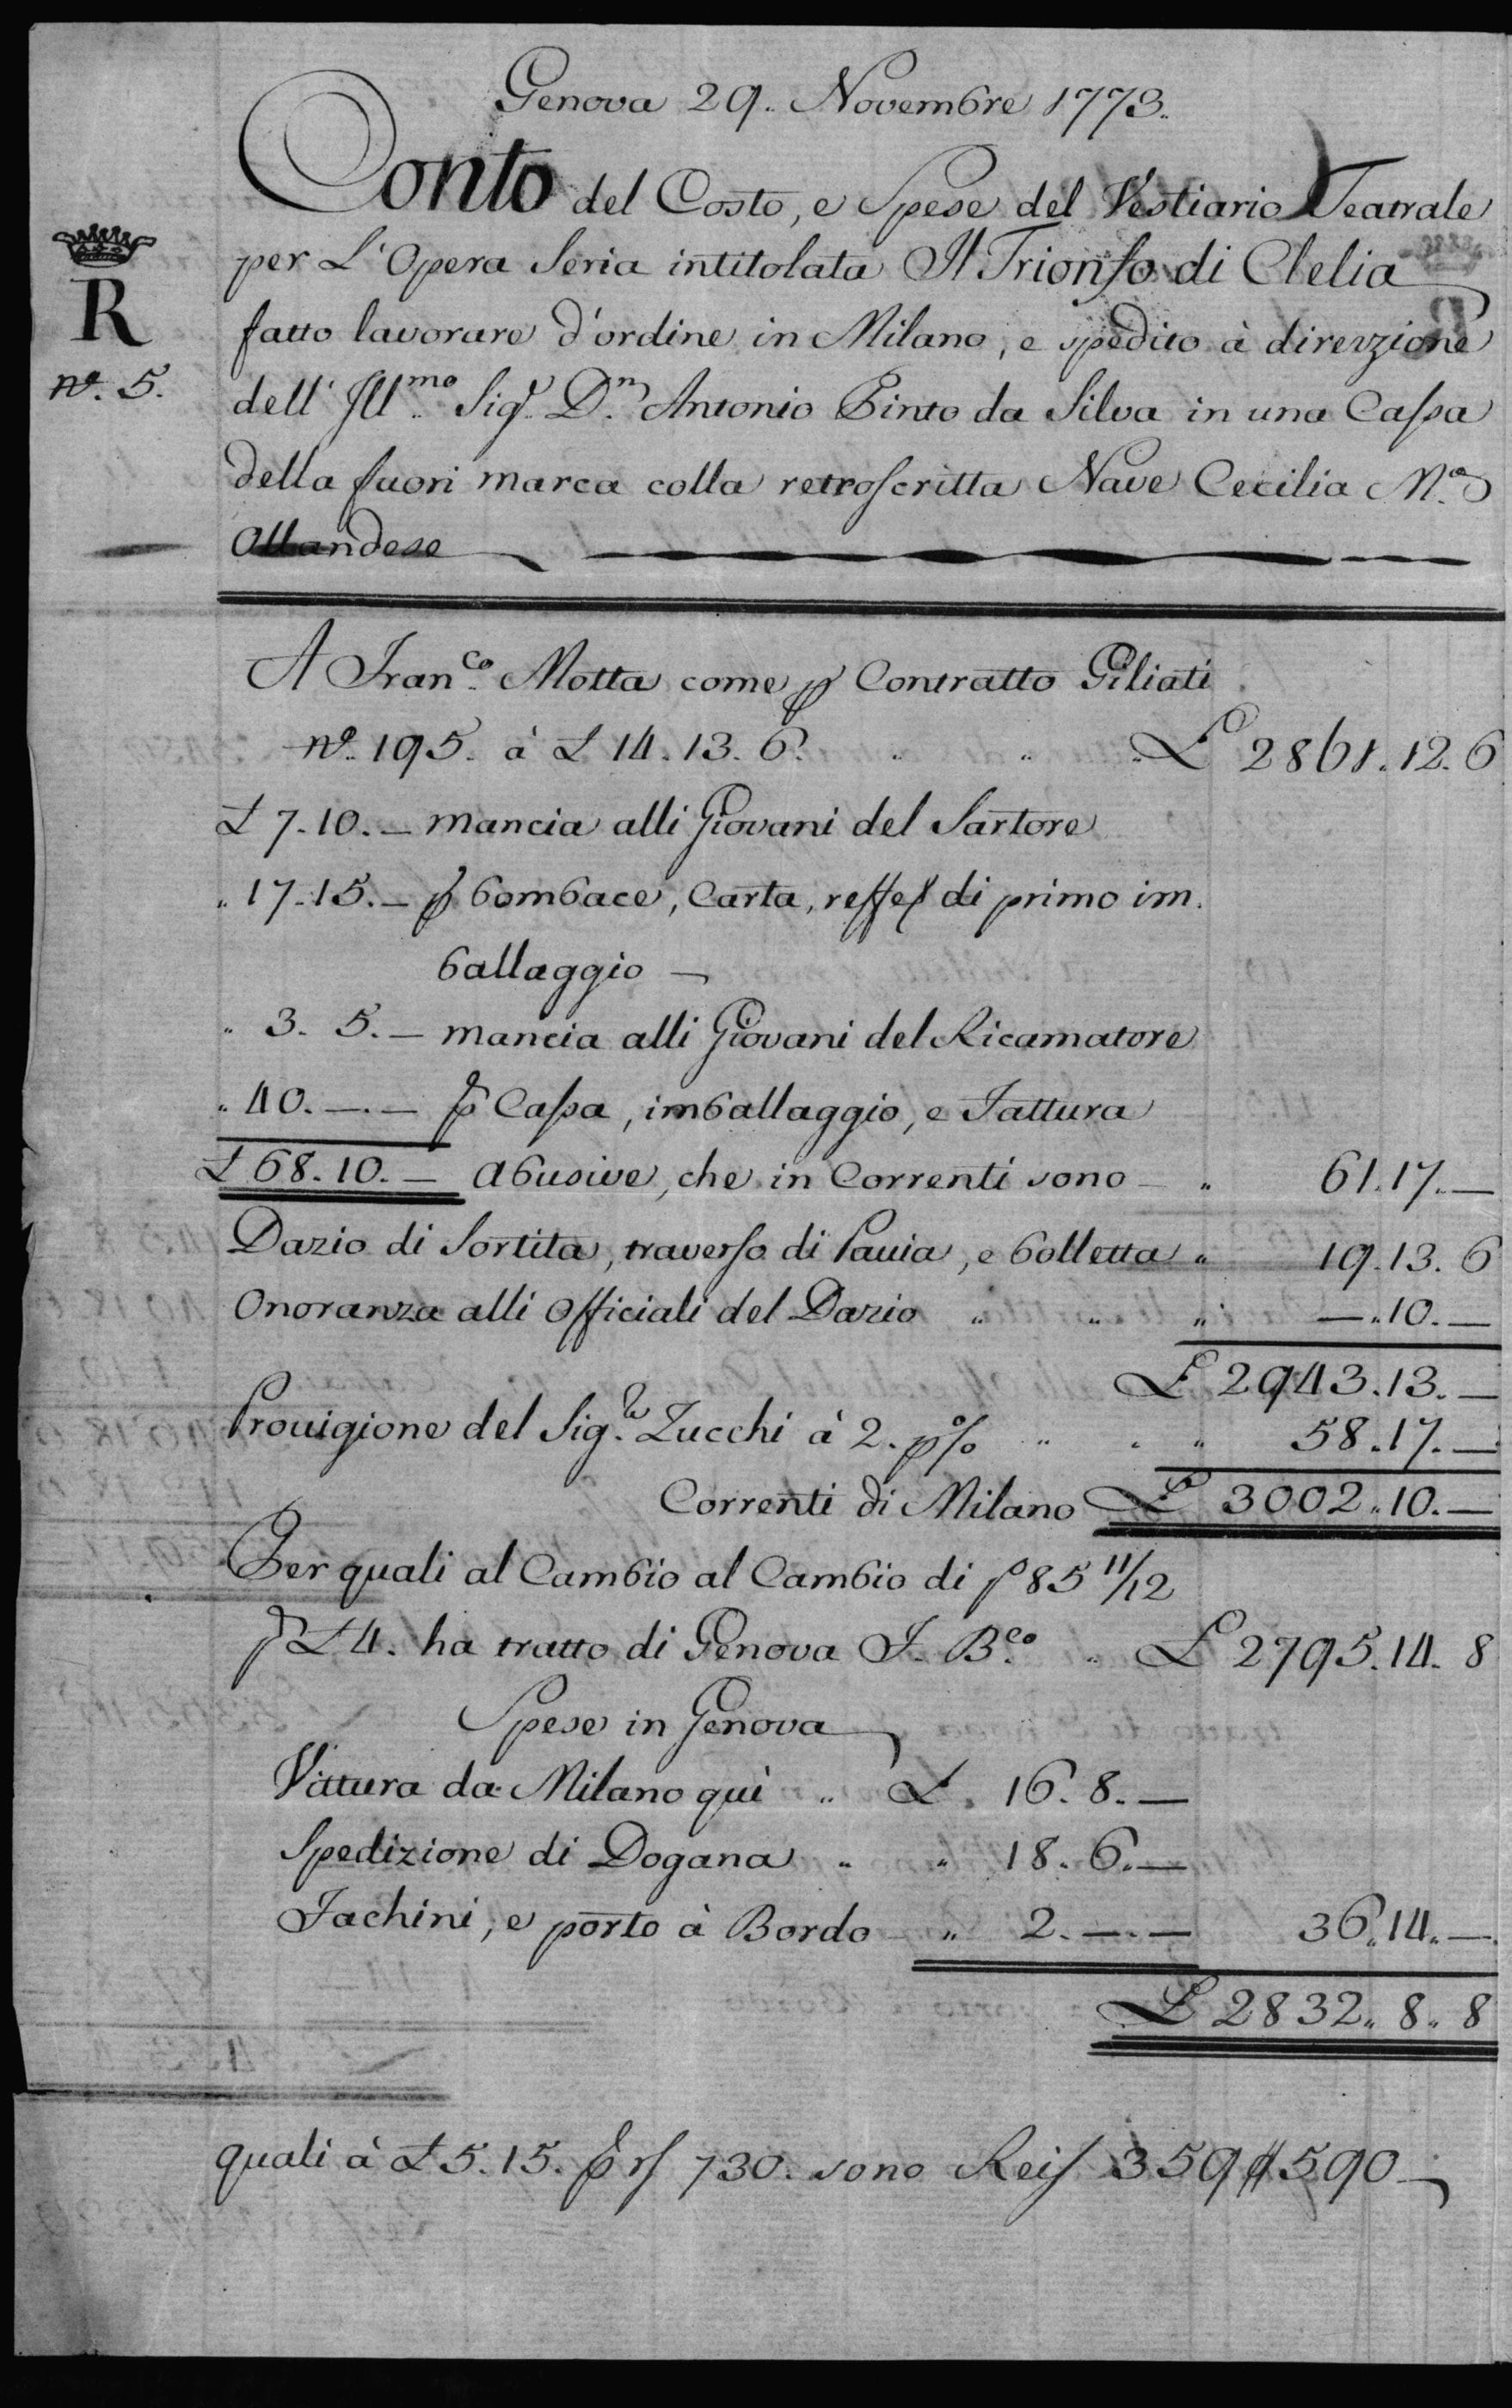 Genova 29. Novembre 1773.
Conto del Costo, e Spese del Vestiario Teatrale
per L'Opera Seria intitolata Il Trionfo di Clelia
fatto lavorare d'ordine in Milano, e spedito à direzzione
dell' Ill.mo Sig.r D.n Antonio Pinto da Silva in una Cassa
della fuori marca colla retroscritta Nave Cecilia M.a
Ollandese
R
nº. 5.
A Fran.co Motta come p Contratto Giliati
nº. 195. à £ 14.13.6. " " £ 2861.12.6
£ 7.10.— mancia alli Giovani del Sartore
" 17.15.— p bombace, Carta, reffe di primo im.
ballaggio —
" 3. 5.— mancia alli Giovani del Ricamatore
" 40.—.— p Cassa, imballaggio, e Fattura
£ 68.10.— Abusive, che in Correnti sono — " 61.17.—
Dazio di Sortita, traverso di Pavia, e bolletta " 19.13.6
Onoranza alli Officiali del Dazio " " " —.10.—
£ 2943.13.—
Provigione del Sig.re Zucchi à 2. p% " " " 58.17.—
Correnti di Milano £ 3002.10.—
Per quali al Cambio al Cambio di s 85 11/12
p £ 4. ha tratto di Genova F. B.co " £ 2795.14.8
Spese in Genova
Vittura da Milano quì " £. 16.8.—
Spedizione di Dogana " " 18.6.—
Fachini, e porto à Bordo " 2.—.— 36.14.—
£ 2832.8.8
quali à £ 5.15. p rs 730. sono Reis 359$590